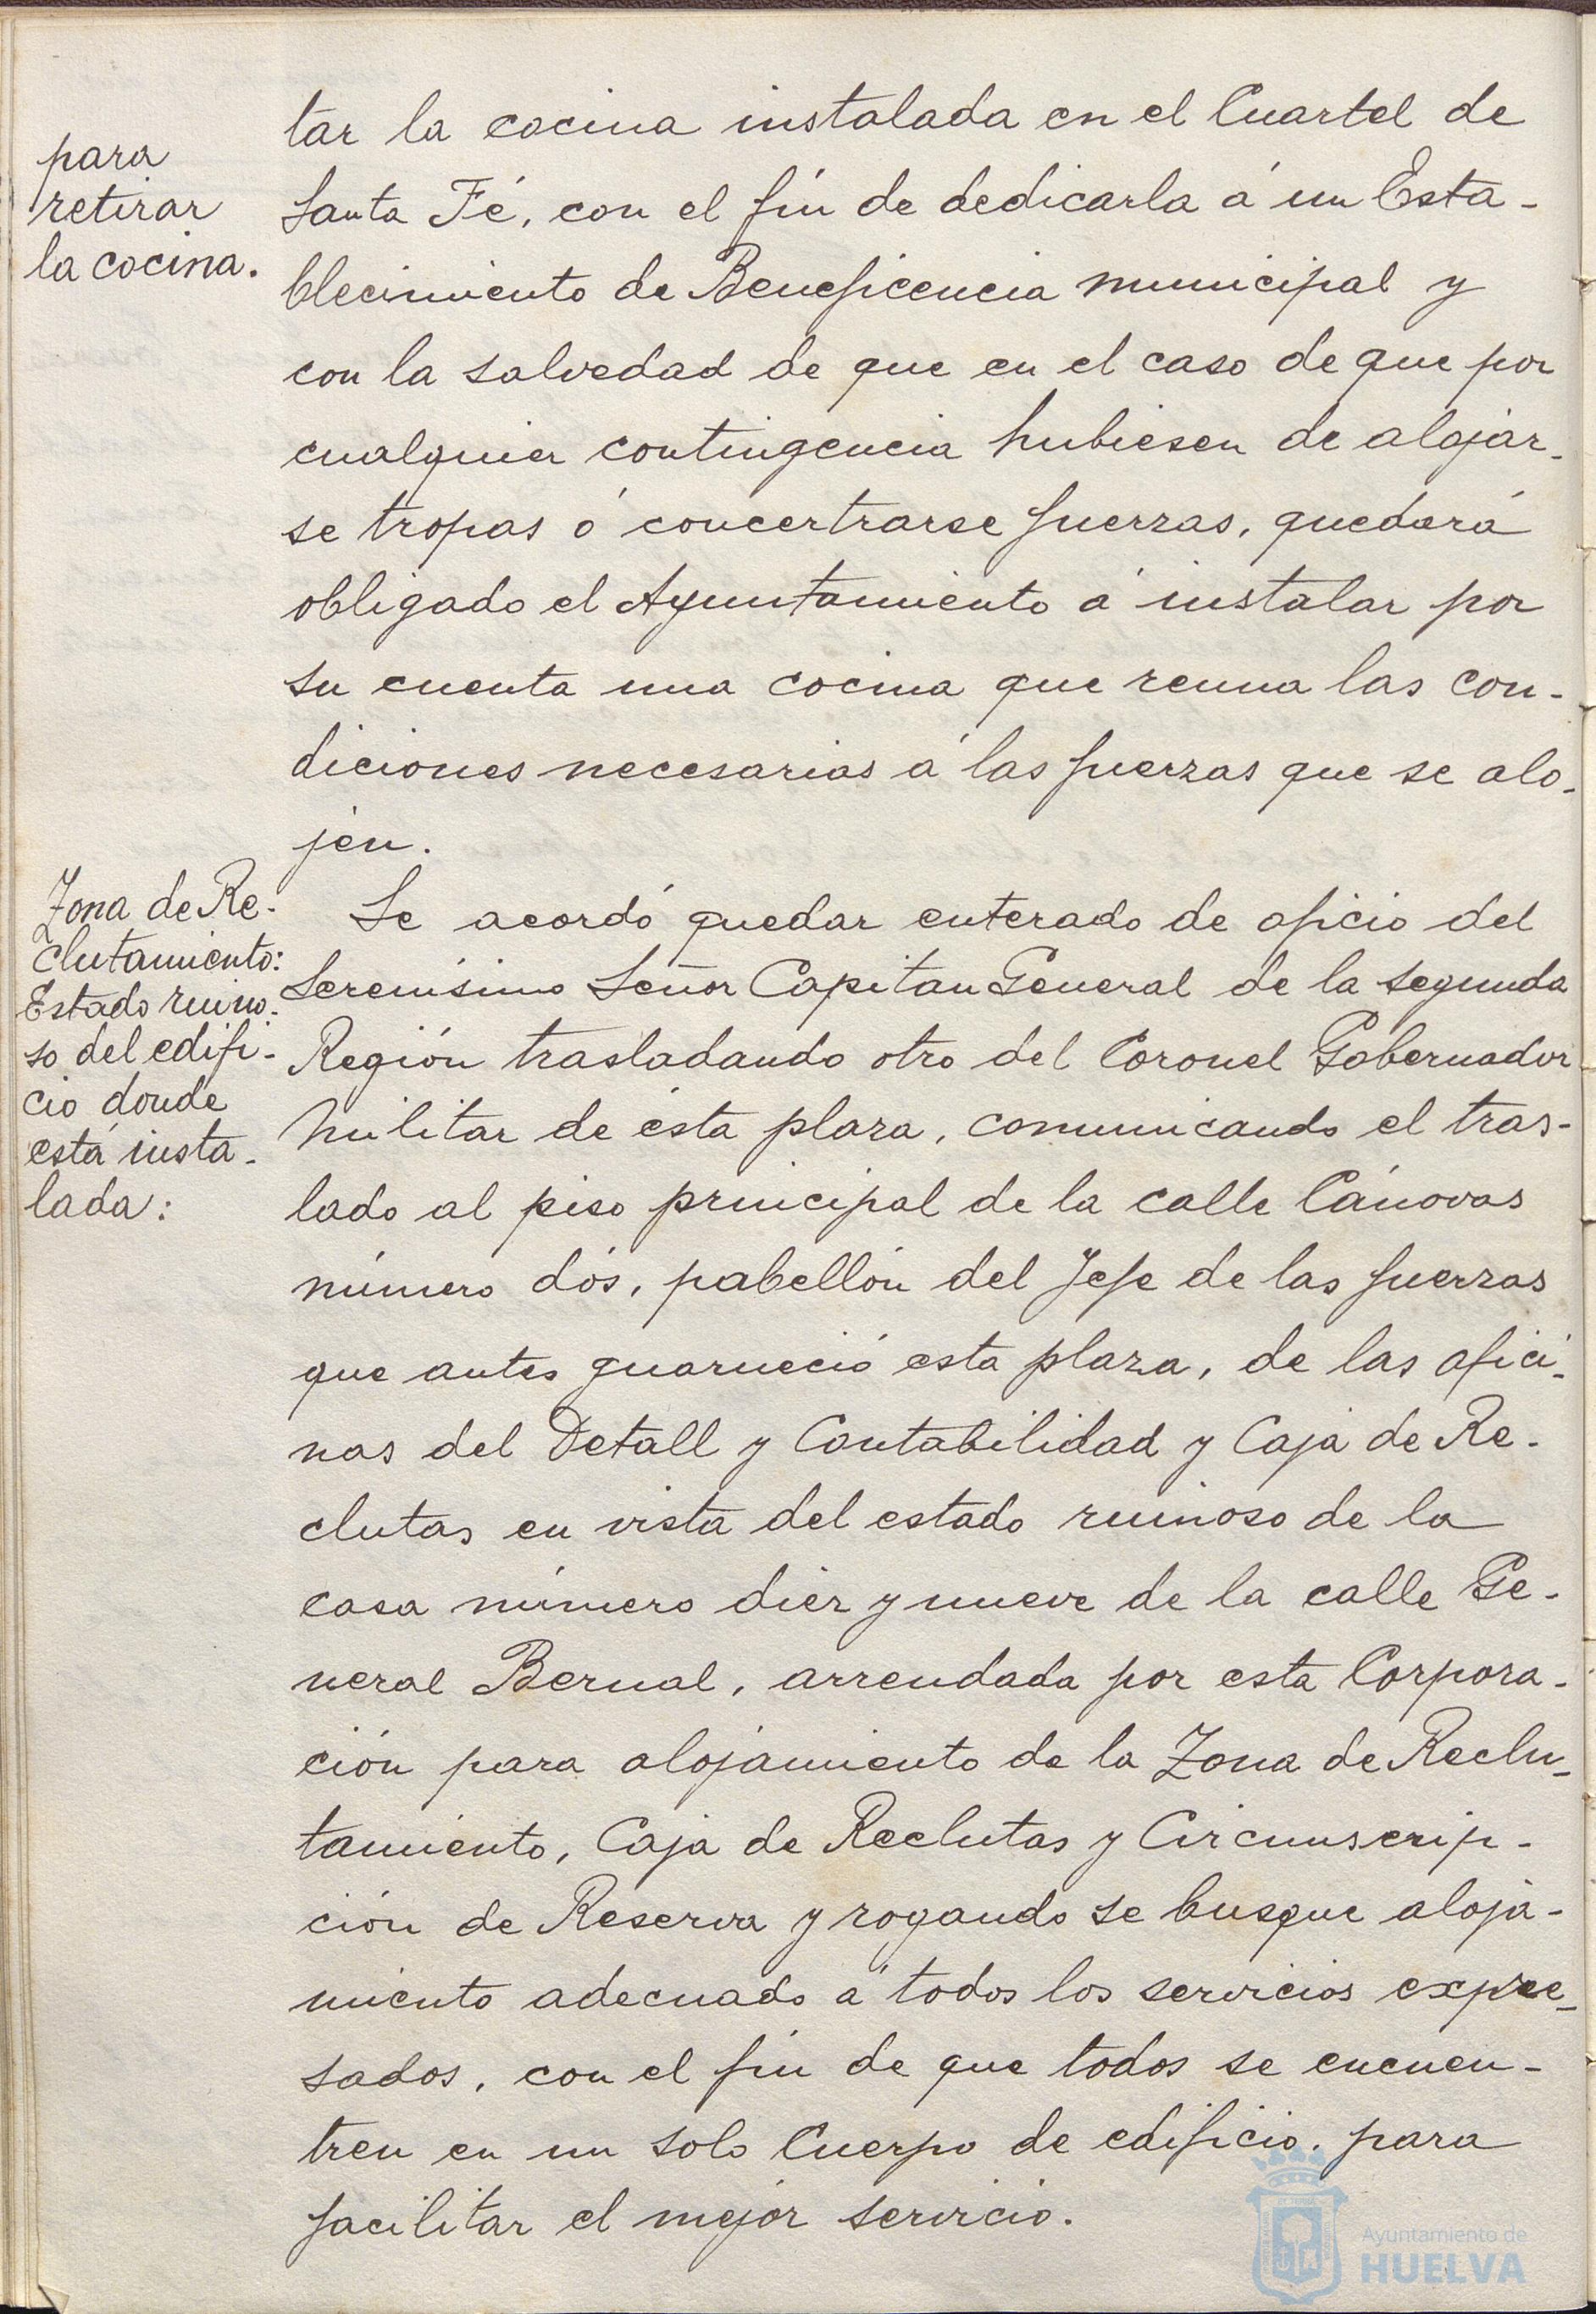 para
retirar
la cocina.
tar la cocina instalada en el Cuartel de
Santa Fé, con el fin de dedicarla á un Esta-
blecimiento de Beneficencia municipal y
con la salvedad de que en el caso de que por
cualquier contingencia hubiesen de alojar-
se tropas ó concertrarse fuerzas, quedará
obligado el Ayuntamiento á instalar por
su cuenta una cocina que reuna las con-
diciones necesarias á las fuerzas que se alo-
jen.
Zona de Re-
clutamiento:
Estado ruino-
so del edifi-
cio donde
está insta-
lada:
Se acordó quedar enterado de oficio del
Serenísimo Señor Capitan General de la segunda
Región trasladando otro del Coronel Gobernador
militar de ésta plaza, comunicando el tras-
lado al piso principal de la calle Cánovas
número dós, pabellón del Jefe de las fuerzas
que antes guarneció esta plaza, de las ofici-
nas del Detall y Contabilidad y Caja de Re-
clutas en vista del estado ruinoso de la
casa número diez y nueve de la calle Ge-
neral Bernal, arrendada por esta Corpora-
ción para alojamiento de la Zona de Reclu-
tamiento, Caja de Reclutas y Circunscrip-
ción de Reserva y rogando se busque aloja-
miento adecuado á todos los servicios expre-
sados, con el fin de que todos se encuen-
tren en un solo Cuerpo de edificio, para
facilitar el mejor servicio.
Ayuntamiento de
HUELVA